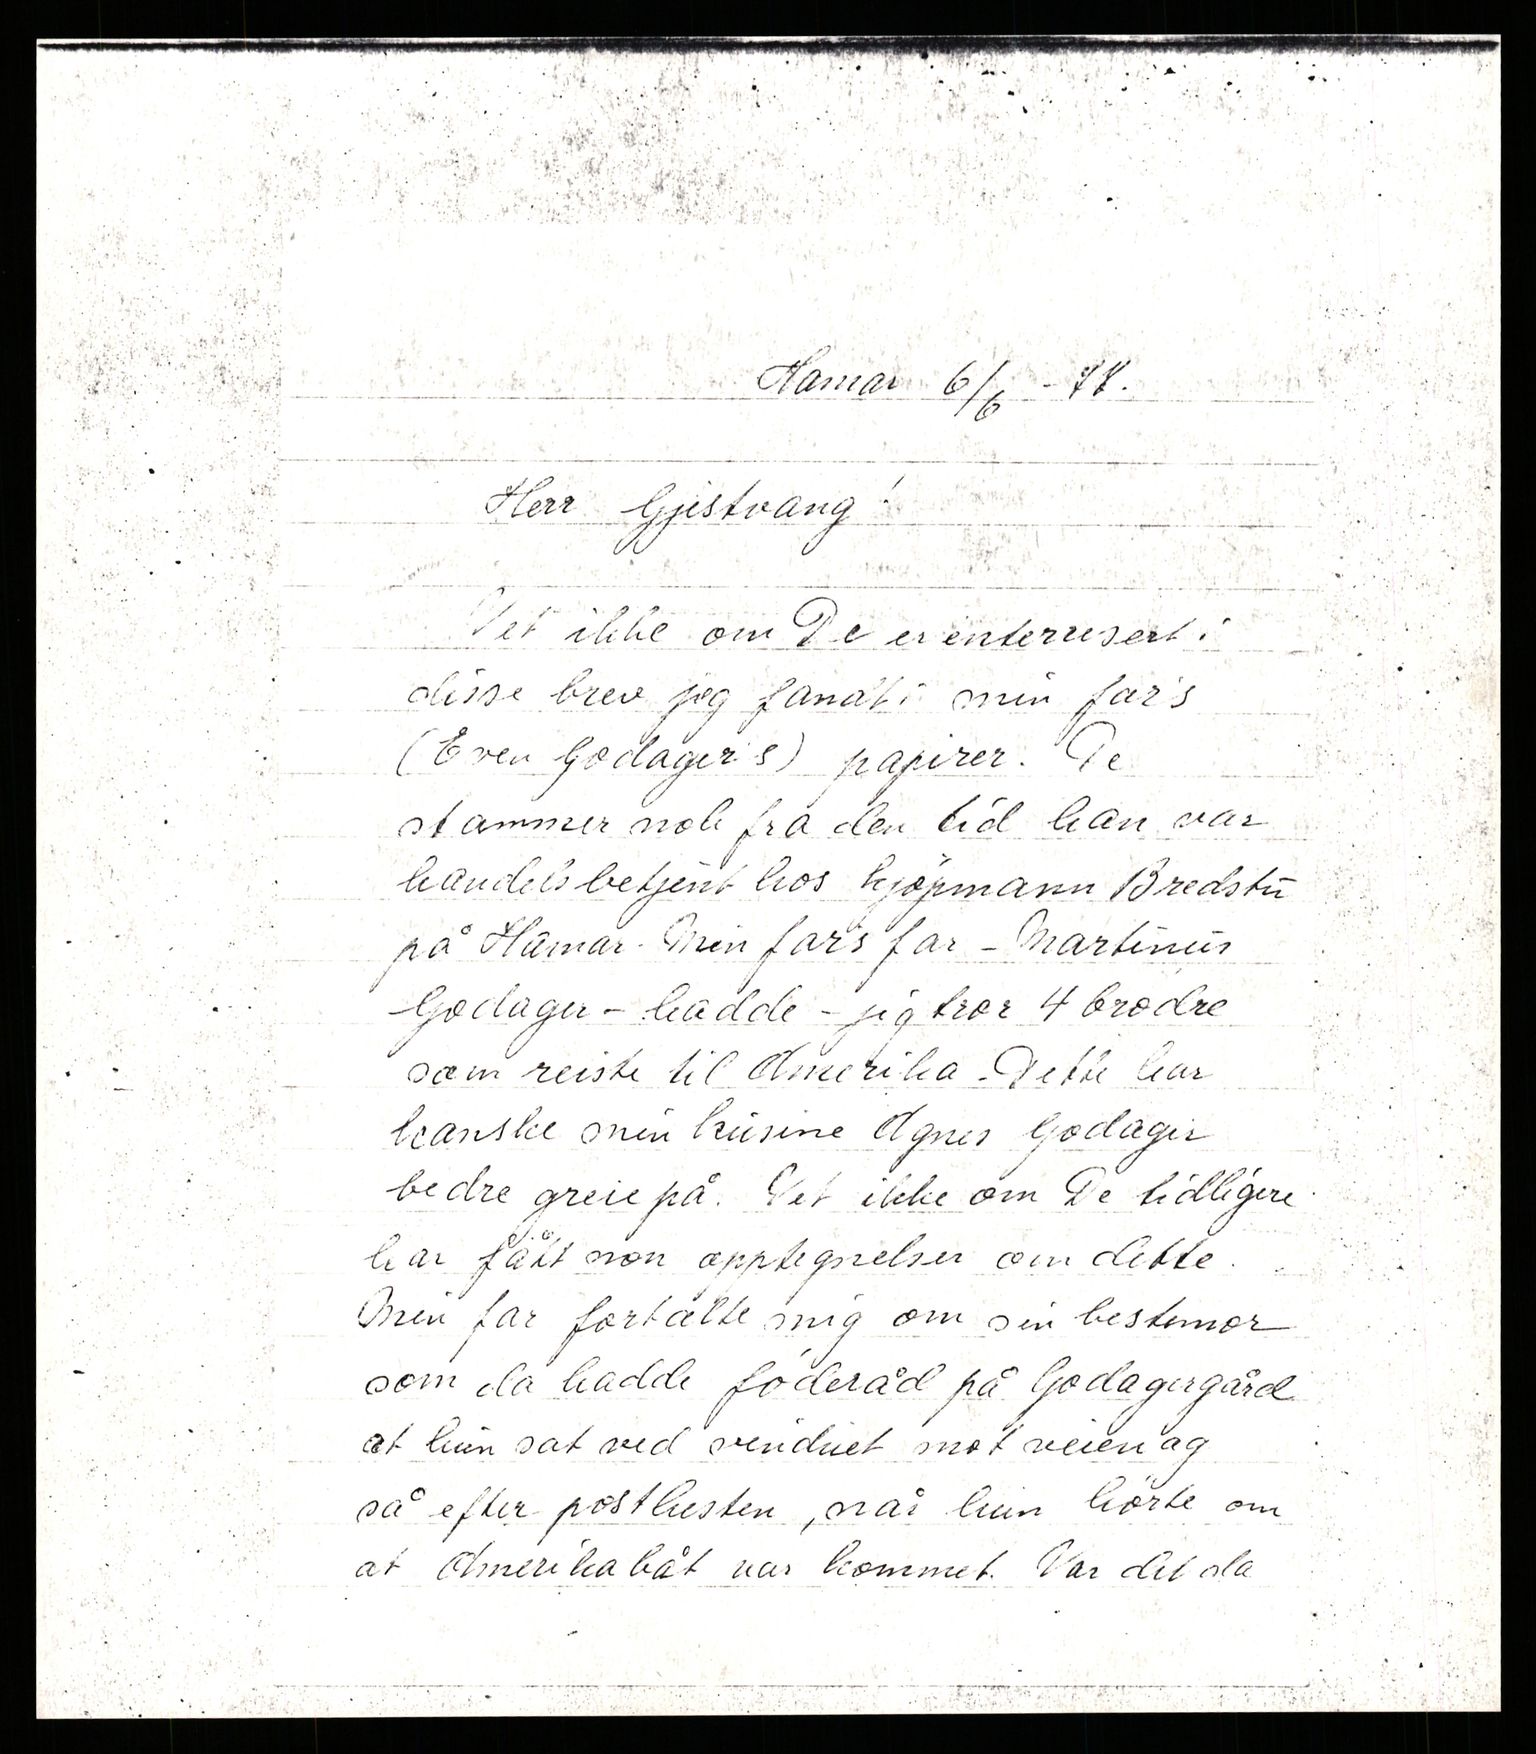 Hamar 6/6 - 77.
Herr Gjestvang!
Vet ikke om De er enterresert i
disse brev jeg fandt i min far's
(Even Godager's) papirer. De
stammer nok fra den tid han var
handelsbetjent hos kjøpmann Bredstu
på Hamar. Min far's far - Martinus
Godager - hadde - jeg tror 4 brødre
som reiste til Amerika. Dette har
kanske min kusine Agnes Godager
bedre greie på. Vet ikke om De tidligere
har fått non opptegnelser om dette.
Min far fortalte mig om sin bestemor
som da hadde føderåd på Godagergård
at hun sat ved vinduet mot veien og
så efter postkusken, når hun hørte om
at Amerikabåt var kommet. Var det da